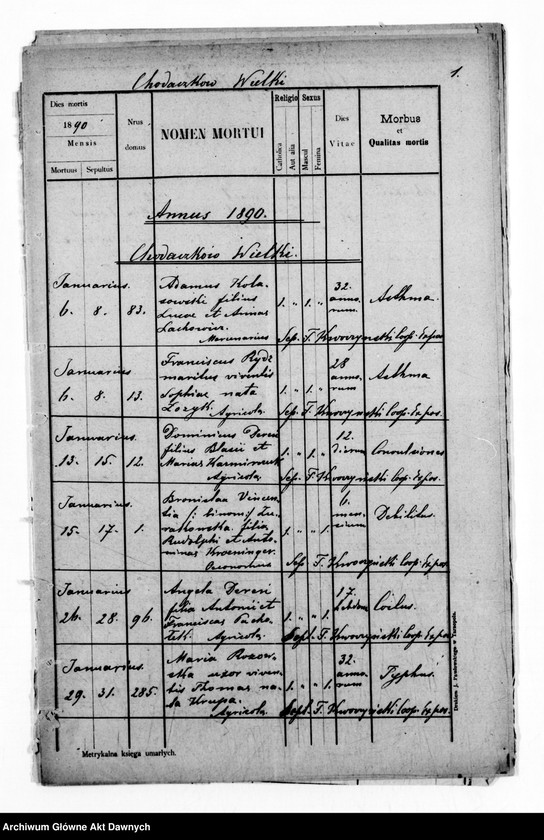 Chodaczków Wielki
1.
Dies mortis
1890
Mensis
Mortuus Sepultus
Nrus domus
NOMEN MORTUI
Religio
Catholica
Aut alia
Sexus
Mascul
Femina
Dies Vitae
Morbus et Qualitas mortis
Annus 1890.
Chodaczków Wielki.
Januarius. 6. 8. 83.
Adamus Kola-
sowski filius
Lucae et Annae
Lachowicz.
Mercenarius
1. " 1. "
32. anno-
rum.
Asthma.
Sep. T. Kworzyński Coop. expos.
Januarius. 6. 8. 13.
Franciscus Rydz
maritus viventis
Sophiae nata
Zozyk. Agricola.
1. " 1. "
28 anno-
rum
Asthma
Sep. T. Kworzyński Coop. expos.
Januarius. 13. 15. 12.
Dominicus Dereń
filius Blasii et
Mariae
Agricola.
1. " 1. "
12. dierum
Convulsiones
Sep. T. Kworzyński Coop. expos.
Januarius 15. 17. 1.
Bronislaa Vincen-
tia (: binom :) Żu-
rakowska filia
Rudolphi et Anto-
ninae Kroeninger.
Oeconomus
1. " " 1.
6. men-
sium
Debilitas.
Sep. T. Kworzyński Coop. expos.
Januarius 26. 28. 96.
Angela Dereń
filia Antonii et
Franciscae
Agricola.
1. " " 1.
17. hebdom.
Sepl. T. Kworzyński Coop. expos.
Januarius. 29. 31. 285.
Maria Rozow-
ska uxor viven-
tis Thomae na-
ta Krupa.
Agricola.
1. " " 1.
32. anno-
rum
Typhus.
Sepl. T. Kworzyński Coop. expos.
Metrykalna księga umarłych.
Drukiem J. Pawłowskiego w Tarnopolu.
Archiwum Główne Akt Dawnych